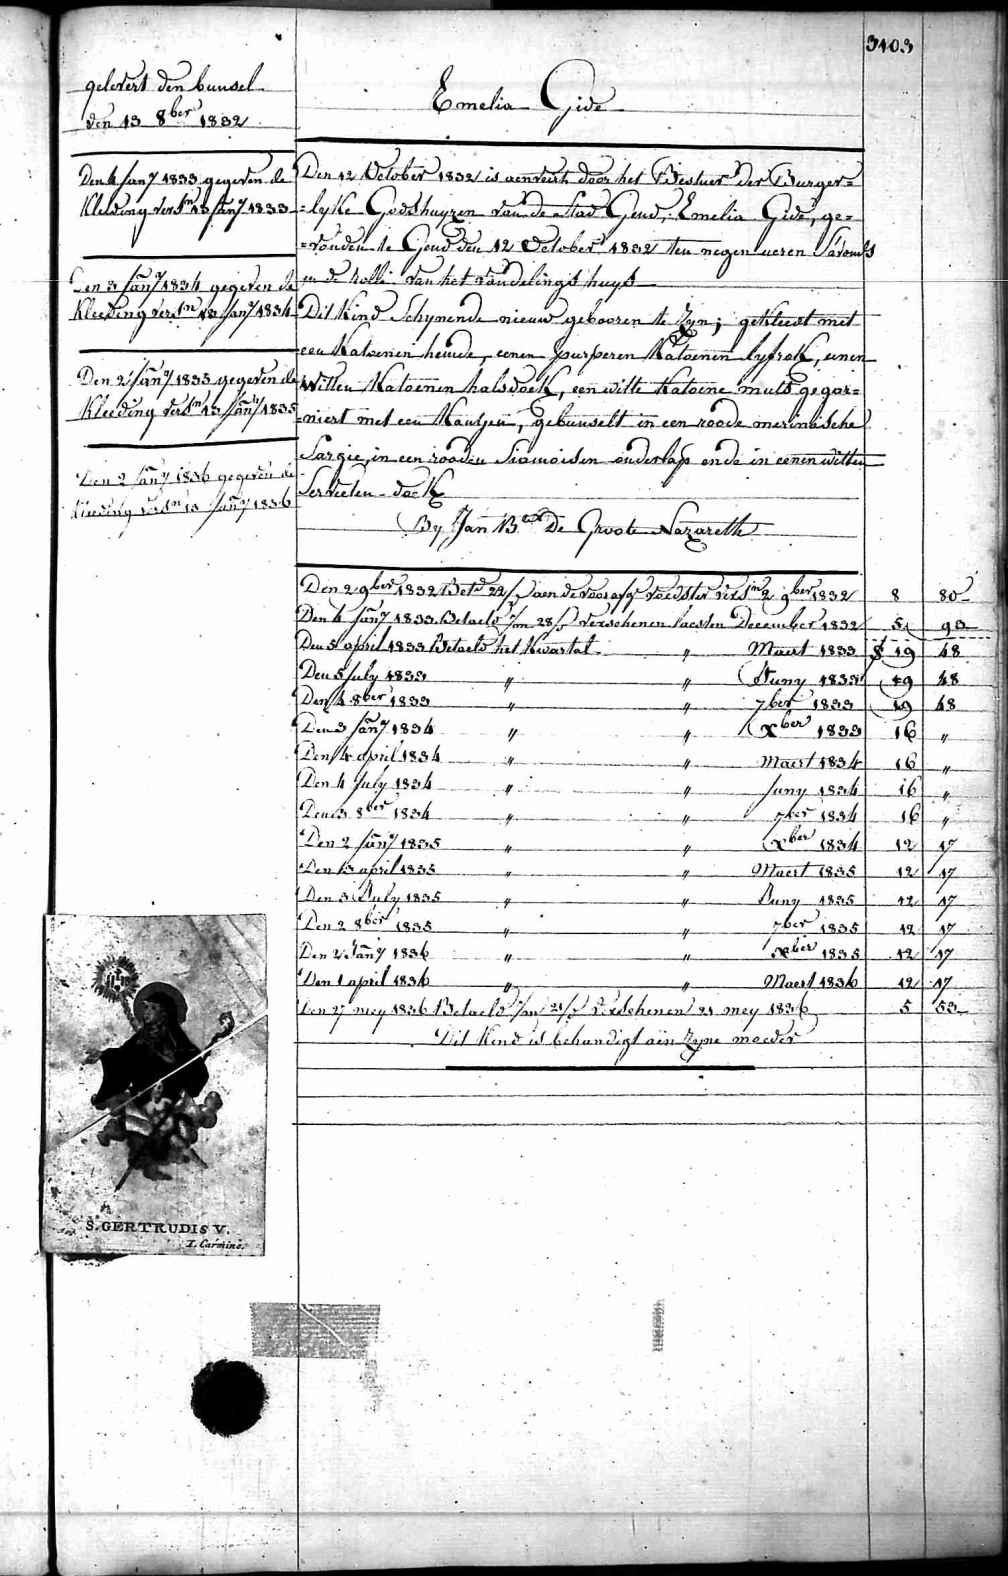 3103
gelevert den bunsel
den 13 8ber 1832
Emelia Gide
Den 4 Jany 1833 gegeven de
Kleeding versn 13 Jany 1833
Den 3 Jany 1834 gegeven de
Kleeding versn 13 Jany 1834
Den 2 Jany 1835 gegeven de
Kleeding versn 13 Jany 1835
Den 2 Jany 1836 gegeven de
Kleeding versn 13 Jany 1836
Den 12 October 1832 is aenveirt door het Bestuer der Burger=
=lyke Godshuyzen van de stad Gend, Emelia Gide, ge=
=vonden te Gend den 12 October 1832 ten negen ueren S'avonds
in de rolle van het vondelingshuys
Dit Kind Schynende nieuw gebooren te Zyn; gekleed met
een Katoenen hemde, eenen purperen Katoenen lyfrok, eenen
Witten Katoenen halsdoek, een witte Katoene muts gegar=
=niert met een Kantjen, gebunselt in een roode merinosche
Sargie, in een rooden Siamoisen onderlap ende in eenen witten
Servieten-doek
By Jan Bte De Groote Nazareth
Den 2 9ber 1832 Betd 22/ aen de voorasge voedster versn 2 9ber 1832 8 80
Den 4 Jany 1833 Betaeld 7/m 28/ verschenen laesten December 1832 5 93
Den 5 april 1833 Betaeld het Kwartal „ Maert 1833 19 48
Den 5 July 1833 „ „ Juny 1833 19 48
Den 4 8ber 1833 „ „ 7ber 1833 19 48
Den 3 Jany 1834 „ „ Xber 1833 16 „
Den 4 april 1834 „ „ Maert 1834 16 „
Den 4 July 1834 „ „ Juny 1834 16 „
Den 3 8ber 1834 „ „ 7ber 1834 16 „
Den 2 Jany 1835 „ „ Xber 1834 12 17
Den 13 april 1835 „ „ Maert 1835 12 17
Den 3 July 1835 „ „ Juny 1835 12 17
Den 2 8ber 1835 „ „ 7ber 1835 12 17
Den 2 Jany 1836 „ „ Xber 1835 12 17
Den 1 april 1836 „ „ Maert 1836 12 17
Den 27 mey 1836 Betaeld 7/m 21/ verschenen 21 mey 1836 5 53
Dit Kind is behandigt aen Zyne moeder
S. GERTRUDIS V.
I. Carmine.